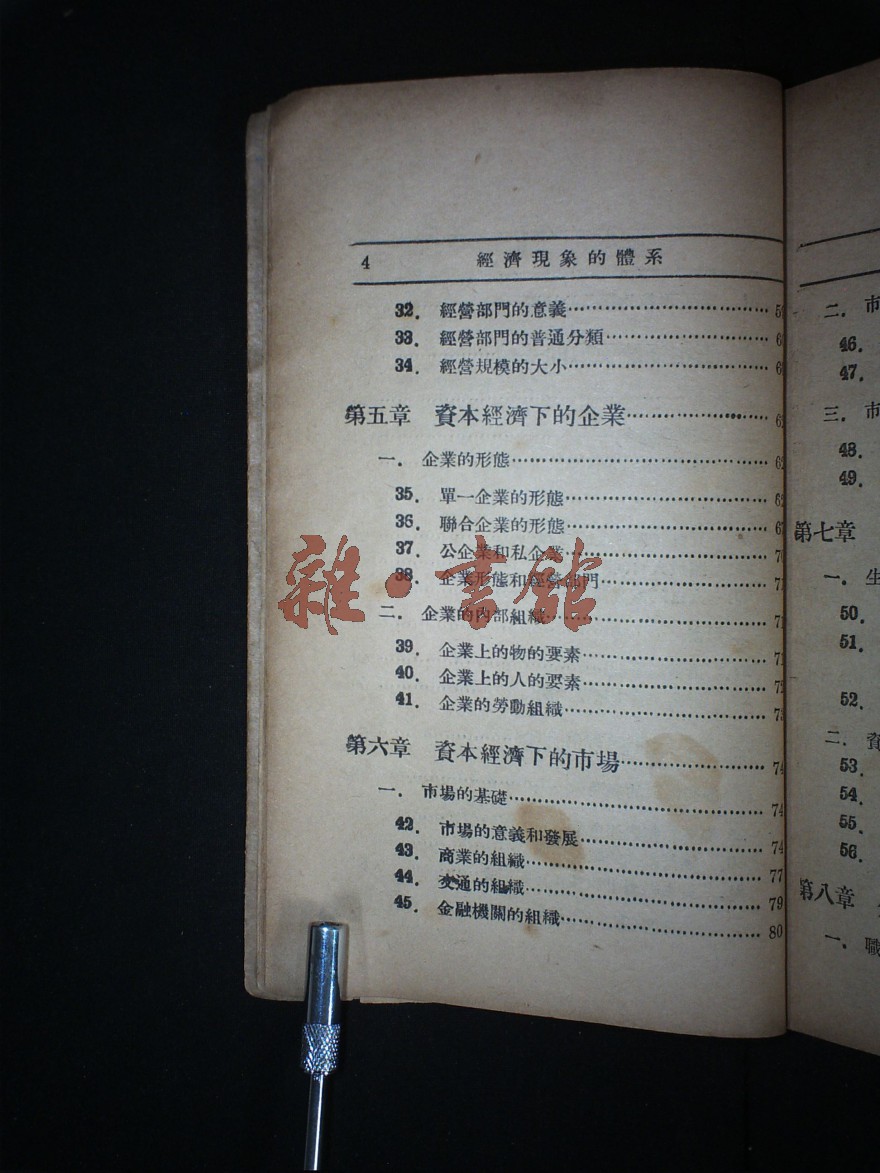 4 經濟現象的體系
32. 經營部門的意義
33. 經營部門的普通分類
34. 經營規模的大小
第五章 資本經濟下的企業
一. 企業的形態
35. 單一企業的形態
36. 聯合企業的形態
37. 公企業和私企業
38. 企業形態和經營部門
二. 企業的內部組織
39. 企業上的物的要素
40. 企業上的人的要素
41. 企業的勞動組織
第六章 資本經濟下的市場 74
一. 市場的基礎 74
42. 市場的意義和發展 74
43. 商業的組織 77
44. 交通的組織 79
45. 金融機關的組織 80
雜·書館
二. 市
46.
47.
三. 市
48.
49.
第七章
一. 生
50.
51.
52.
二. 資
53.
54.
55.
56.
第八章
一. 職